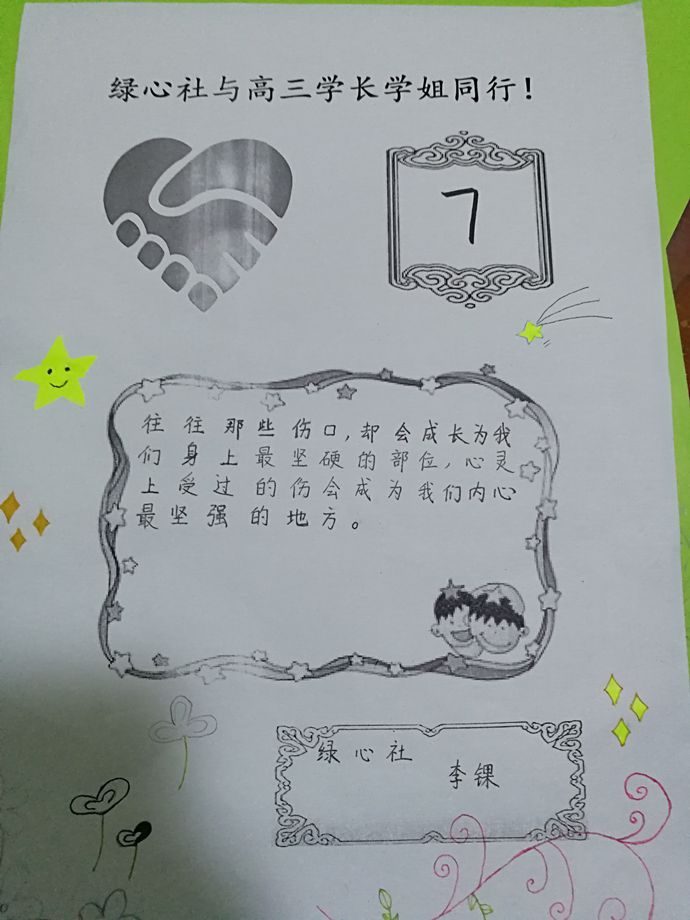 绿心社与高三学长学姐同行！
7
往往那些伤口，却会成长为我
们身上最坚硬的部位，心灵
上受过的伤会成为我们内心
最坚强的地方。
绿心社
李锞